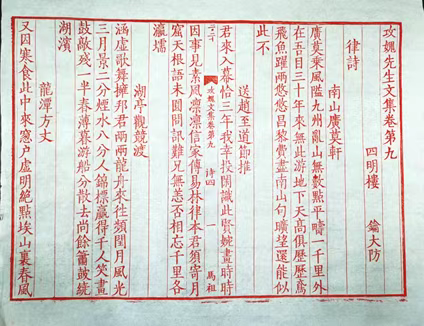 攻媿先生文集卷第九
四明樓 鑰大防
律詩
南山廣莫軒
廣莫乘風隘九州亂山無數點平疇一千里外
在吾目三十年來無此游地下天高俱歷歷鳶
飛魚躍兩悠悠昌黎費盡南山句曠望還能似
此不
送趙至道節推
君來入幕恰三年我幸投閒識此賢婉畫時時
因事見素風凛凛信家傳易林律本君須寄月
窟天根語未圓問訊難兄無恙否相忘千里各
瀛壖
攻媿文集卷第九
詩四
一
馬祖
湖亭觀競渡
涵虛歌舞擁邦君兩兩龍舟來往頻閏月風光
三月景二分煙水八分人錦標贏得千人笑畫
鼓敲殘一半春薄暮游船分散去尚餘簫鼓繞
湖濱
龍潭方丈
又因寒食此中來窓户虛明絶點埃山裏春風